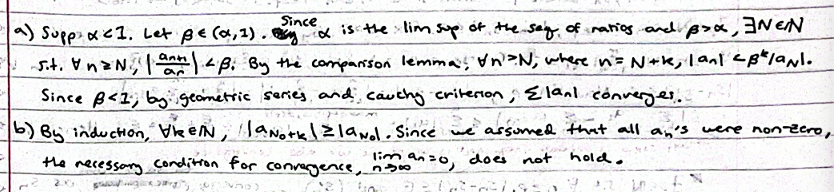 a) Supp α<1. Let β∈(α,1). Since α is the lim sup of the seq. of ratios and β>α, ∃N∈ℕ
s.t. ∀n≥N, |aₙ₊₁/aₙ|<β. By the comparison lemma, ∀n>N, where n=N+k, |aₙ|<βᵏ|a_N|.
Since β<1, by geometric series and cauchy criterion, Σ|aₙ| converges.
b) By induction, ∀k∈ℕ, |a_{N₀+k}|≥|a_{N₀}|. Since we assumed that all aₙ's were non-zero,
the necessary condition for convergence, lim_{n→∞} aₙ=0, does not hold.